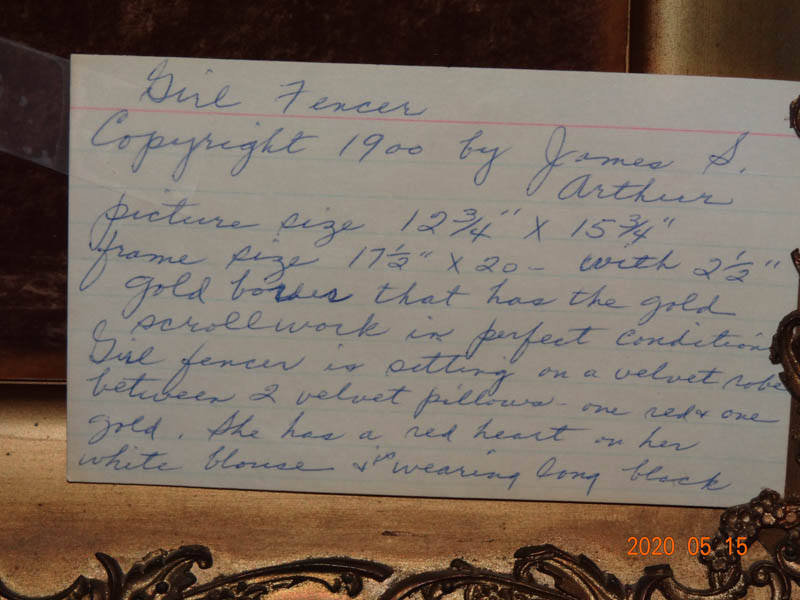 Girl Fencer
Copyright 1900 by James S.
Arthur
picture size 12 3/4" X 15 3/4"
frame size 17 1/2" X 20 - with 2 1/2"
gold that has the gold
scrollwork in perfect condition
Girl fencer is sitting on a velvet robe
between 2 velvet pillows - one red & one
gold. She has a red heart on her
white blouse & is wearing long black
2020 05 15